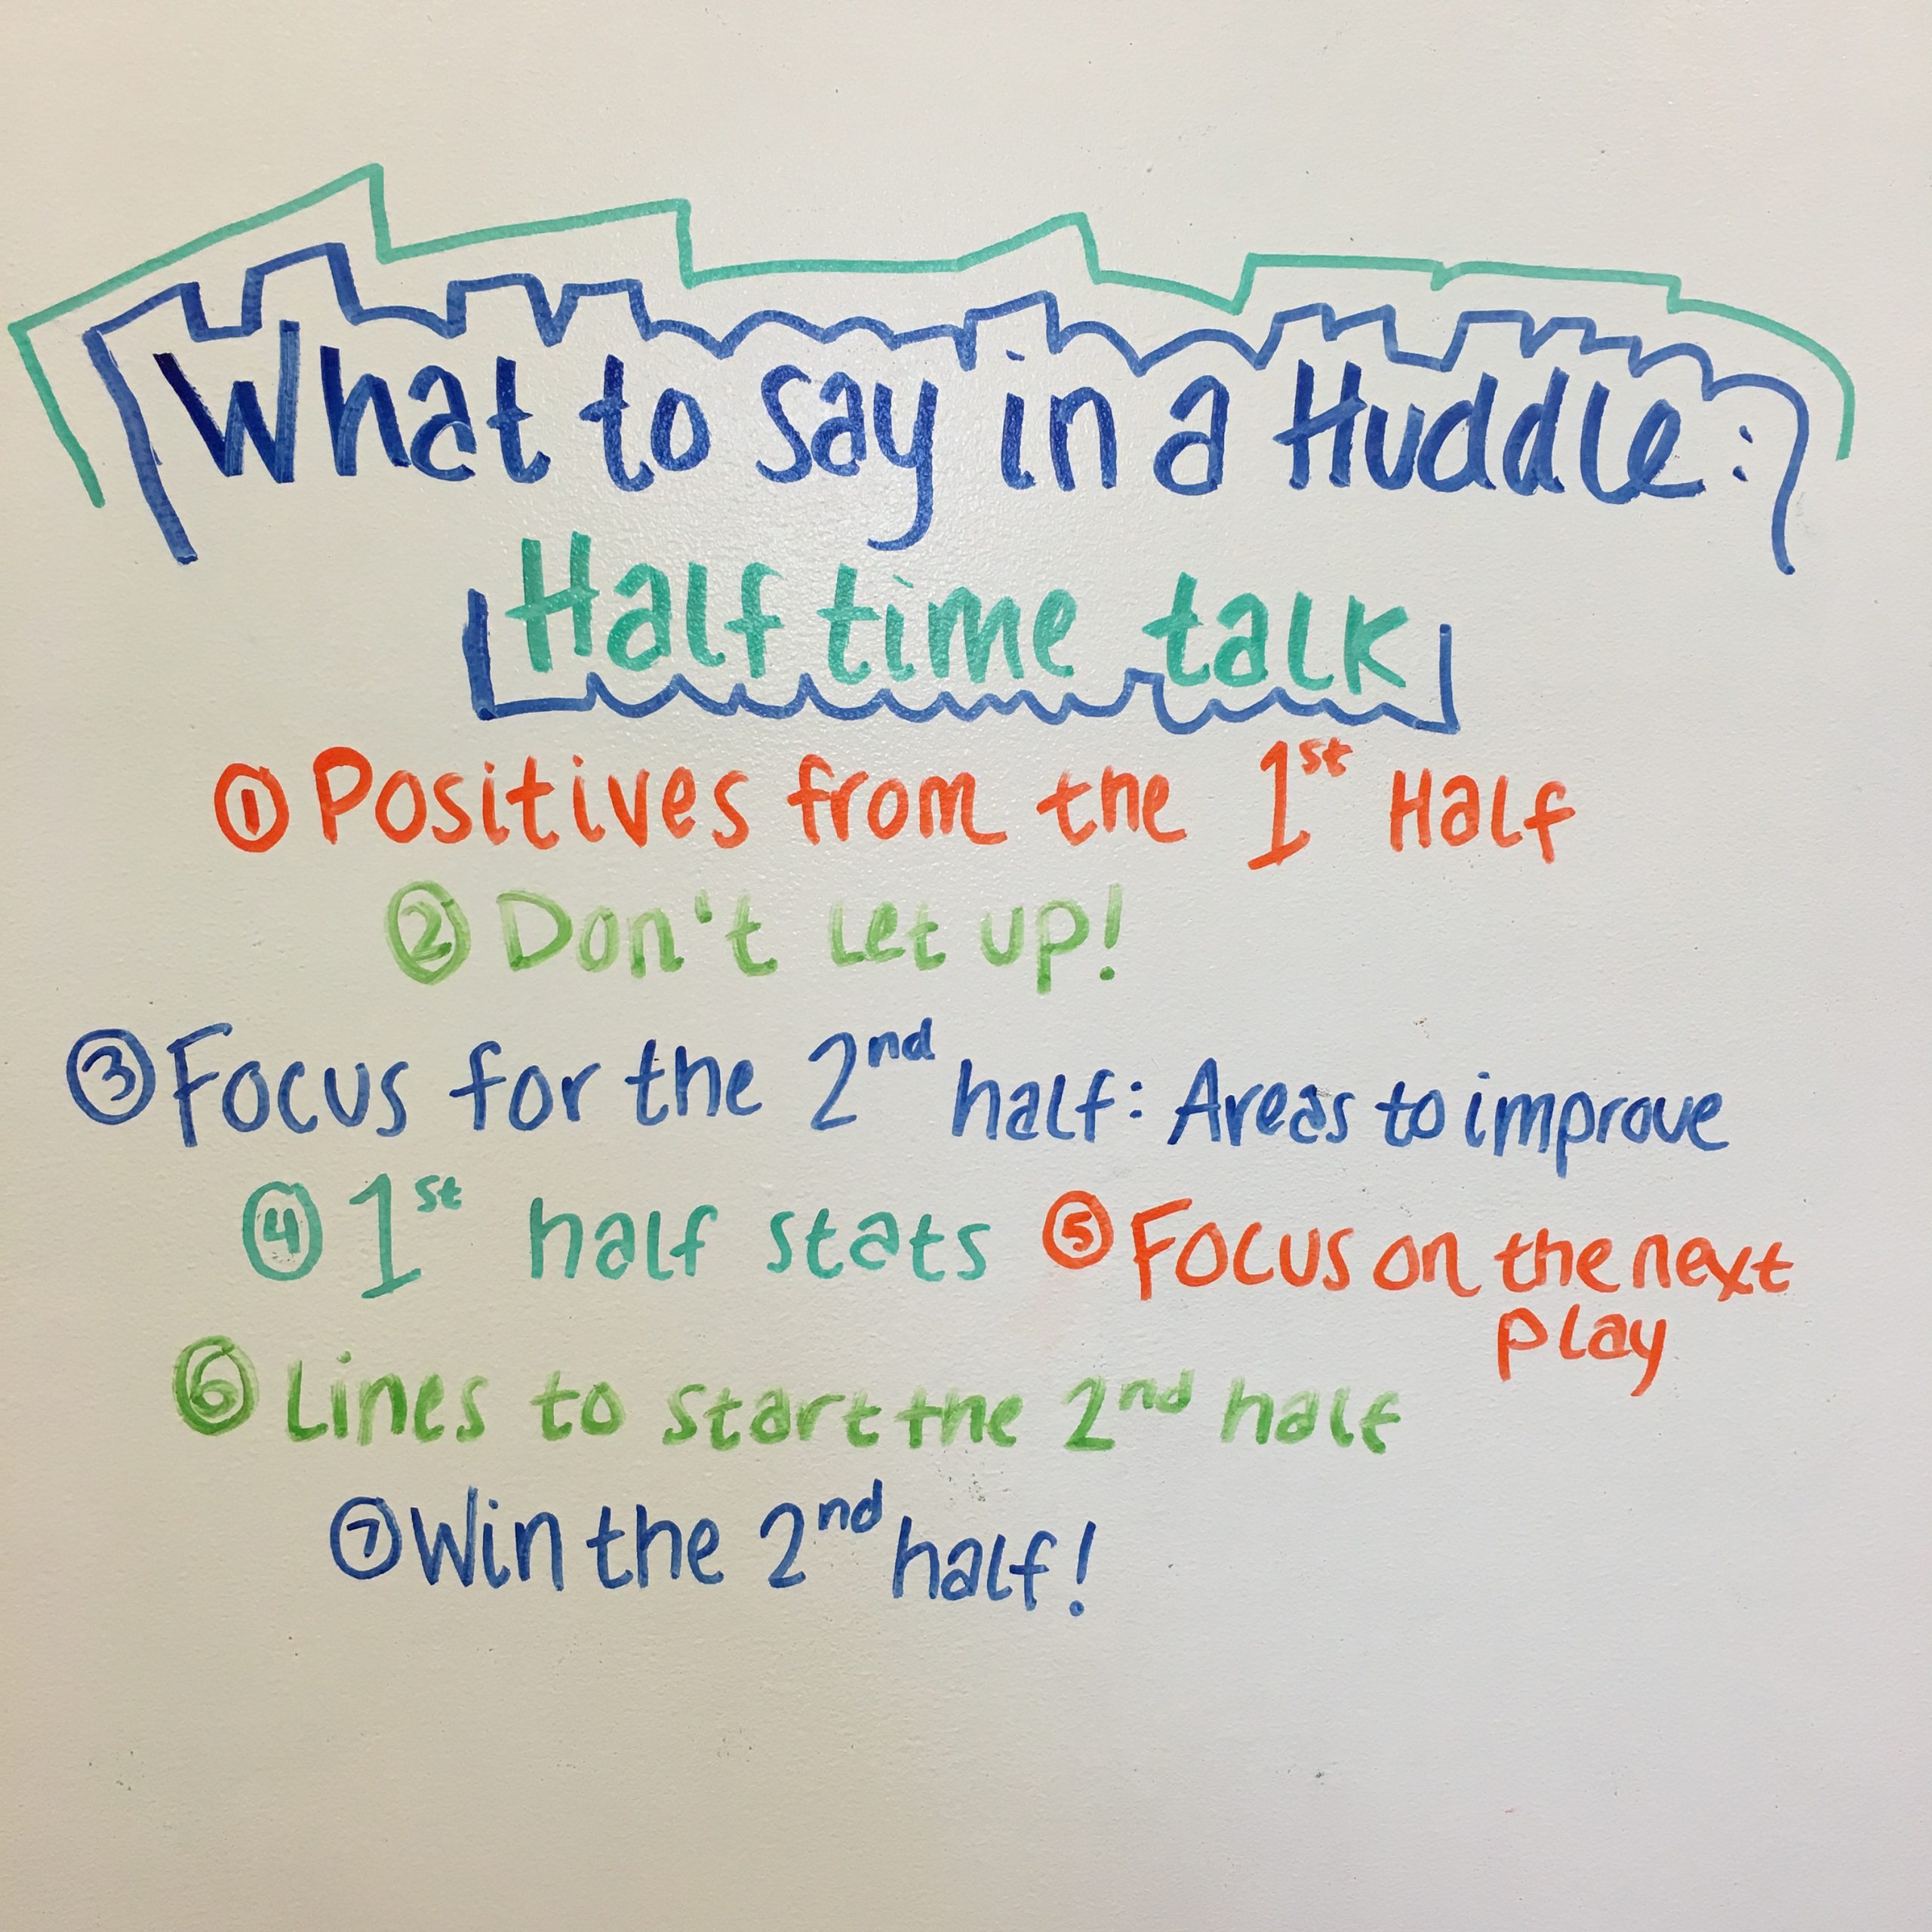 What to say in a Huddle:
Half time talk
① Positives from the 1st Half
② Don't let up!
③ Focus for the 2nd half: Areas to improve
④ 1st half stats ⑤ Focus on the next
play
⑥ Lines to start the 2nd half
⑦ Win the 2nd half!